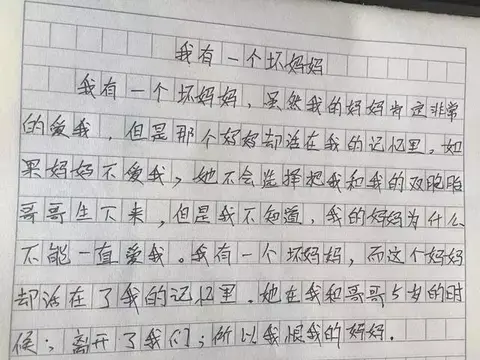 我有一个坏妈妈
我有一个坏妈妈，虽然我的妈妈肯定非常
的爱我，但是那个好妈却活在我的记忆里。如
果妈妈不爱我，她不会选择把我和我的双胞胎
哥哥生下来，但是我不知道，我的妈妈为什么
不能一直爱我。我有一个坏妈妈，而这个妈妈
却活在了我的记忆里。她在我和哥哥5岁的时
候；离开了我们；所以我恨我的妈妈.